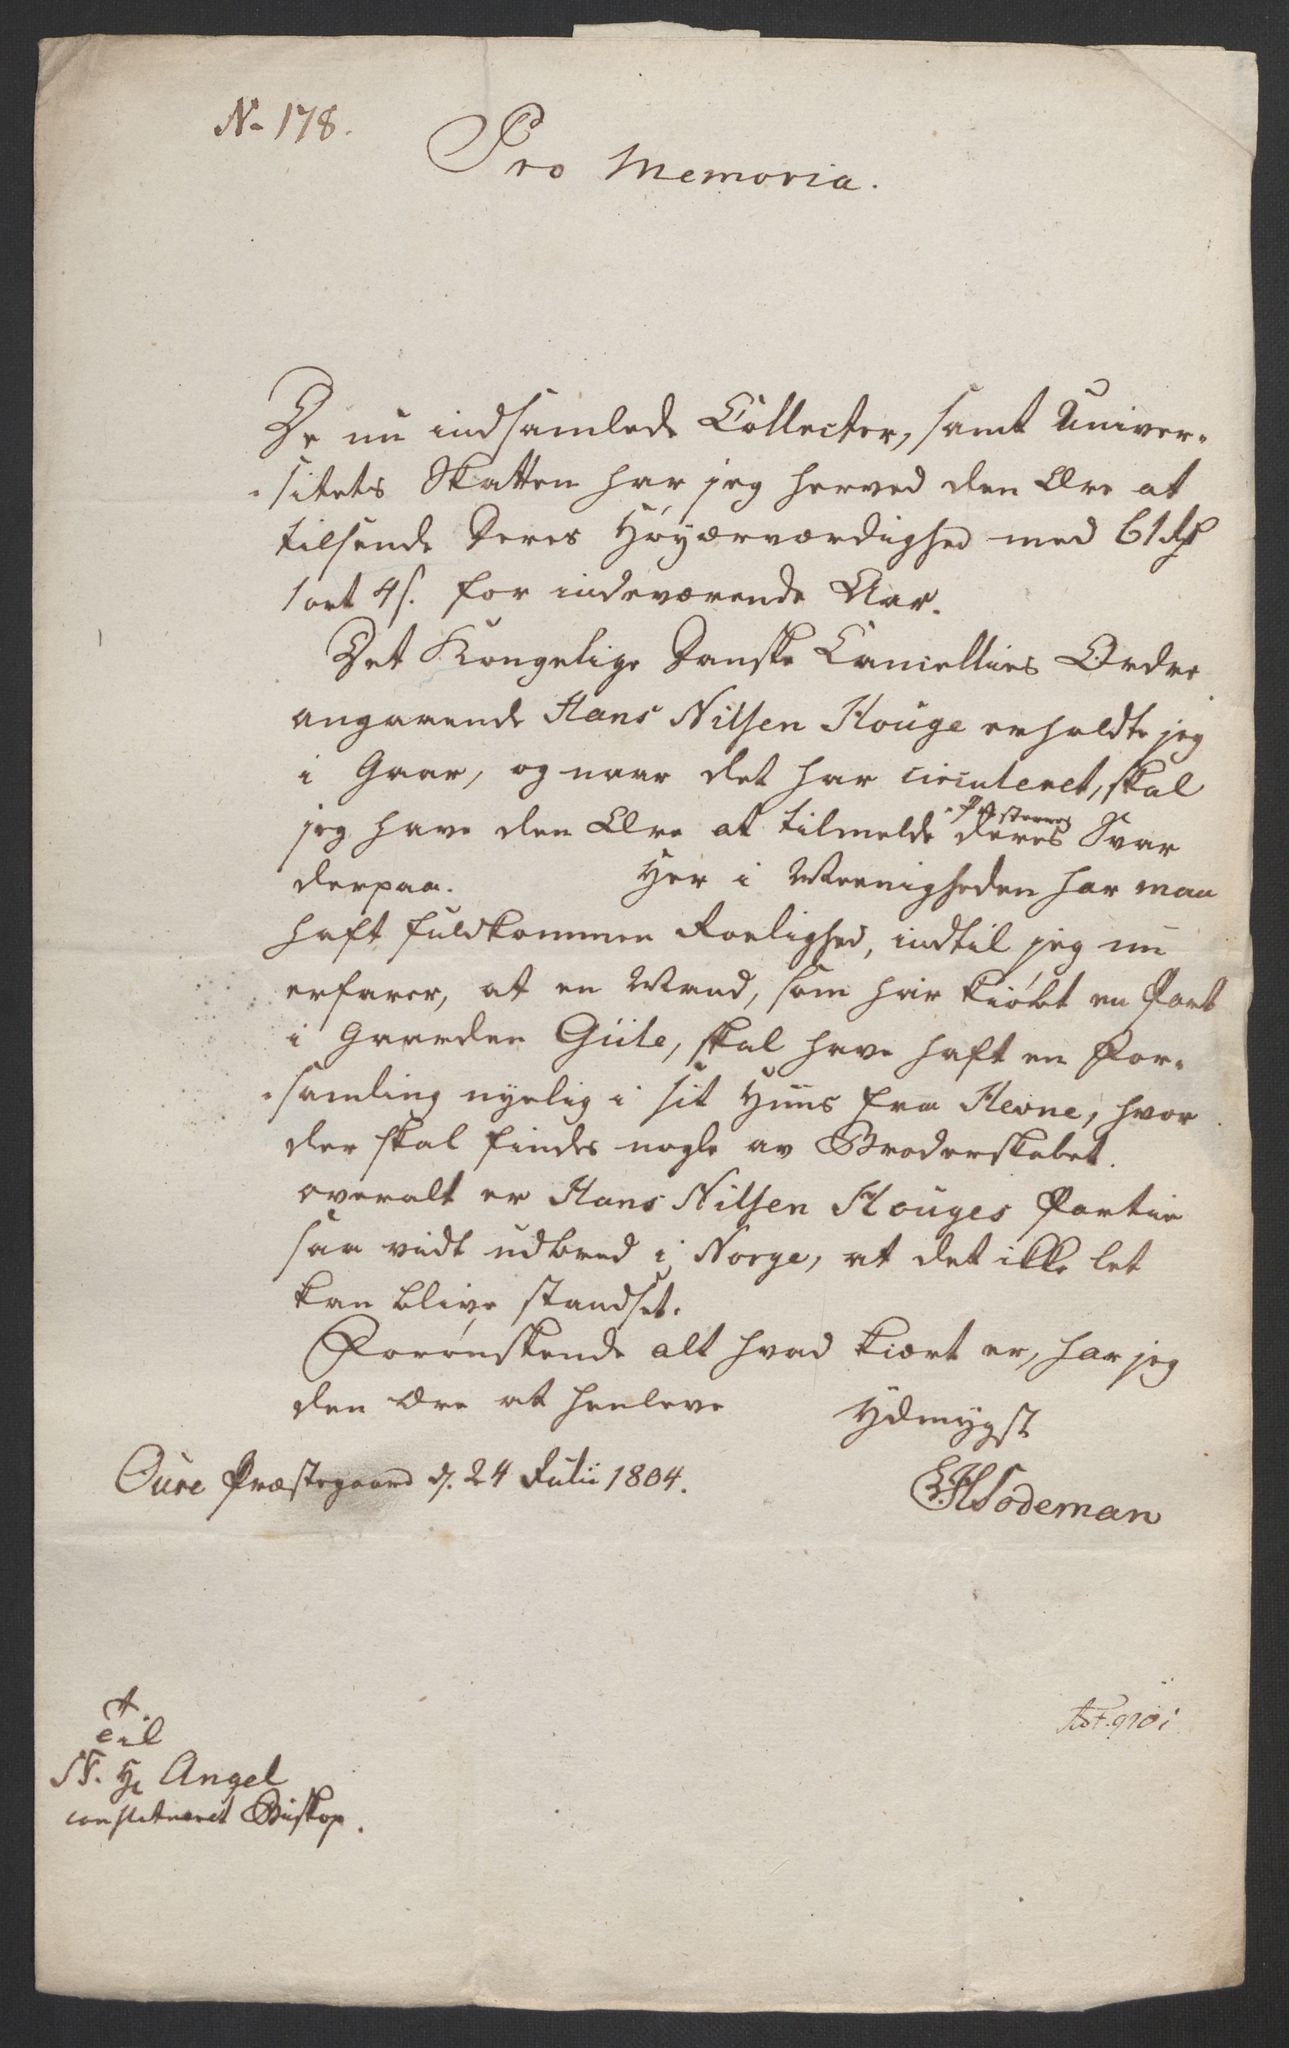 N. 178.
Pro Memoria.
De nu indsamlede Collecter, samt Univer-
-sitets Skatten har jeg herved den Ære at
tilsende Deres Høyærværdighed med 61 Rdr
1 ort 4 s. for indeværende Aar.
Det Kongelige Danske Cancellies Ordre
angaaende Hans Nilsen Houge erholdte jeg
i Gaar, og naar det har circuleret, skal
jeg have den Ære at tilmelde Præsternes
deres Svar
derpaa. Her i Meenigheden har man
haft fuldkommen Roelighed, indtil jeg nu
erfarer, at en Mand, som har kiöbt en Part
i Gaarden Giile, skal have haft en For-
-samling nyelig i sit Huus fra Hevne, hvor
der skal findes nogle av Broderskabet.
overalt er Hans Nilsen Houges Partie
saa vidt udbred i Norge, at det ikke let
kan blive standset.
Forönskende alt hvad kiært er, har jeg
den Ære at henleve Ydmygst
Oure Præstegaard d. 24 Julii 1804.
HSodeman
til
Hr Angel
constitueret Biskop.